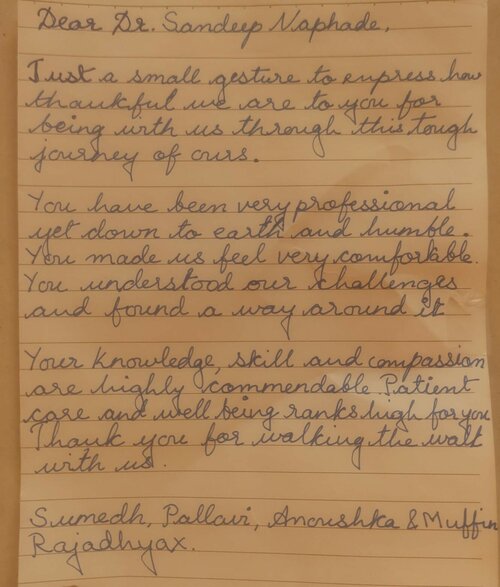 Dear Dr. Sandeep Naphade,
Just a small gesture to express how
thankful we are to you for
being with us through this tough
journey of ours.
You have been very professional
yet down to earth and humble.
You made us feel very comfortable.
You understood our challenges
and found a way around it
Your knowledge, skill and compassion
are highly commendable. Patient
care and well being ranks high for you
Thank you for walking the walk
with us.
Sumedh, Pallavi, Anoushka & Muffin
Rajadhyax.